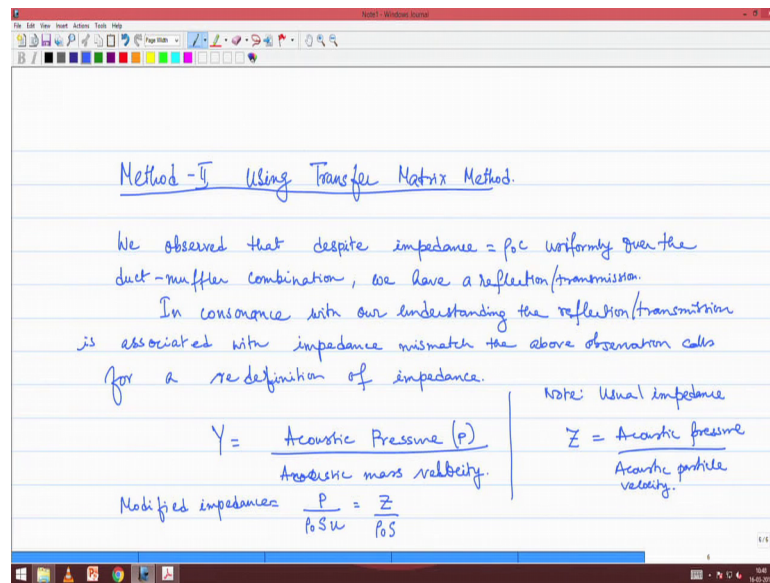 Note1 - Windows Journal
File Edit View Insert Actions Tools Help
Page Width
B I
Method - II Using Transfer Matrix Method.
We observed that despite impedance = ρ₀c uniformly over the
duct-muffler combination, we have a reflection/transmission.
In consonance with our understanding the reflection/transmission
is associated with impedance mismatch the above observation calls
for a redefinition of impedance.
Note: Usual impedance
Y = Acoustic Pressure (p)
Acoustic mass velocity.
Z = Acoustic pressure
Acoustic particle
velocity.
Modified impedance = P / ρ₀Su = Z / ρ₀S
6/6
6
10:48